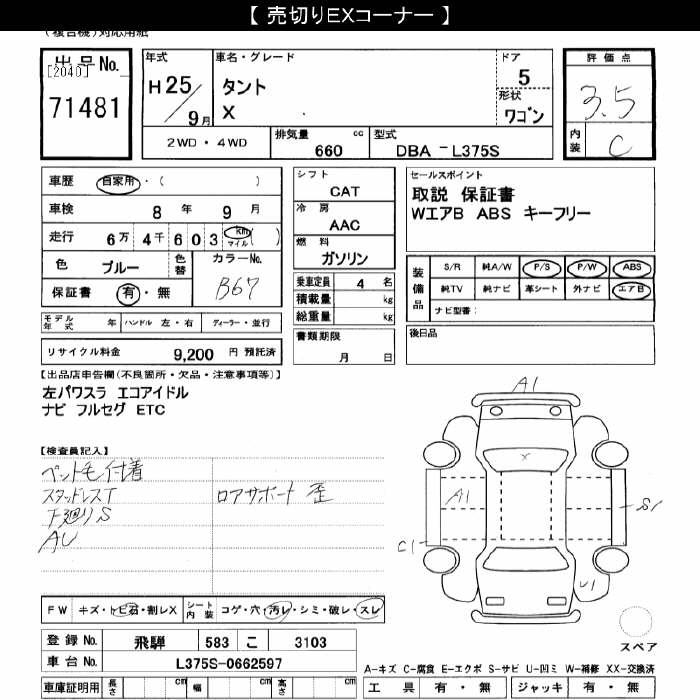 【 売切りEXコーナー 】
(複合機)対応用紙
出品No.
[2040]
71481
年式
H25/9月
車名・グレード
タント
X
ドア
5
形状
ワゴン
評価点
3.5
内装
C
2WD・4WD
排気量 cc
660
型式
DBA -L375S
車歴 自家用・( )
車検 8 年 9 月
走行 6万 4千 6 0 3 km マイル ( )
色 ブルー
色替
カラーNo.
B67
保証書 有・無
モデル年式 年 ハンドル 左・右 ディーラー・並行
リサイクル料金 9,200 円 預託済
シフト
CAT
冷房
AAC
燃料
ガソリン
乗車定員 4 名
積載量 kg
総重量 kg
書類期限
月 日
セールスポイント
取説 保証書
WエアB ABS キーフリー
装備品
S/R 純A/W P/S P/W ABS
純TV 純ナビ 革シート 外ナビ エアB
ナビ型番:
後日品
【出品店申告欄(不良箇所・欠品・注意事項等)】
左パワスラ エコアイドル
ナビ フルセグ ETC
【検査員記入】
ペット毛付着
スタッドレスT
ロアサポート 歪
下廻りS
AU
A1
X
A1
S1
C1
U1
FW キズ・トビ石・割レX
シート内装 コゲ・穴・汚レ・シミ・破レ・スレ
登録No. 飛騨 583 こ 3103
車台No. L375S-0662597
車庫証明用 長さ cm 幅 cm 高さ cm
スペア
A-キズ C-腐食 E-エクボ S-サビ U-凹ミ W-補修 XX-交換済
工具 有・無 ジャッキ 有・無